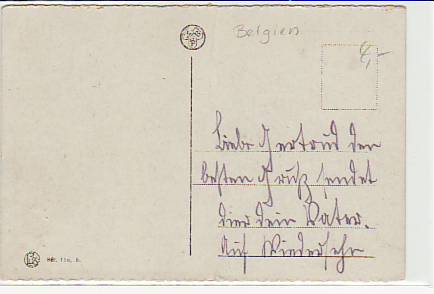 Belgien
4,-
Liebe Gertrud den
besten Gruß sendet
dier dein Vater.
Auf Wiedersehn